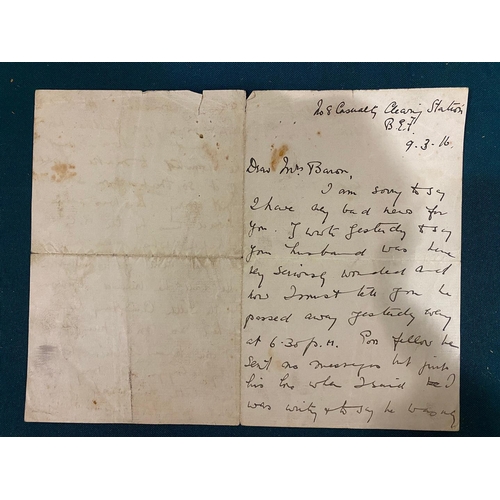 No 8 Casualty Clearing Station
B.E.F
9.3.16.
Dear Mrs Baron,
I am sorry to say
I have very bad news for
you. I wrote yesterday to say
your husband was here
very seriously wounded and
now I must tell you he
passed away yesterday evening
at 6.30 p.m. Poor fellow he
sent no messages but just
his love when I said I
was writing & to say he was